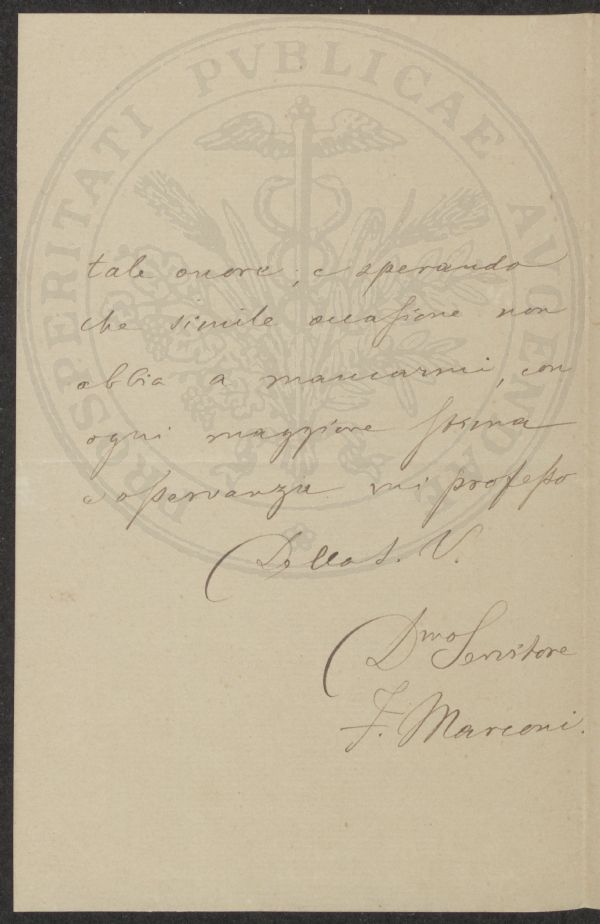 PROSPERITATI PVBLICAE AVGENDAE
tale onore, e sperando
che simile occasione non
abbia a mancarmi, con
ogni maggiore stima
e osservanza mi professo
Della S. V.
Dmo Servitore
F. Marconi.